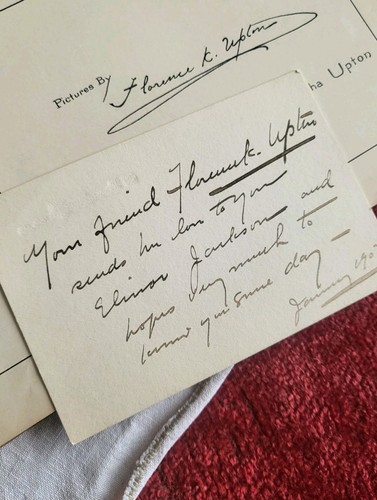 Pictures By Florence K. Upton
ha Upton
Your friend Florence K. Upton
sends her love to you
Elinor Jackson and
hopes very much to
know you some day —
January 190